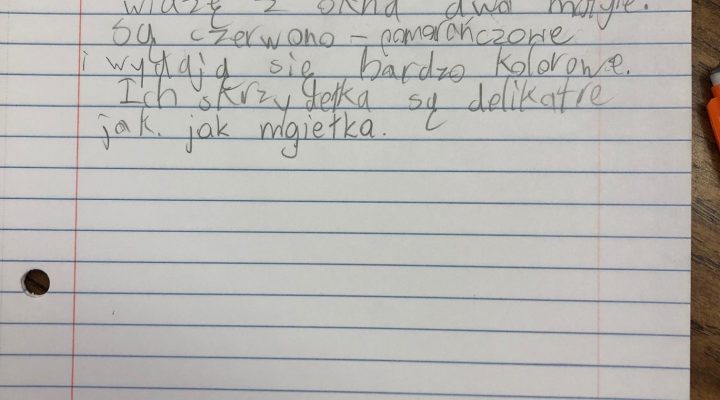 widzę z okna dwa motyle.
Są czerwono - pomarańczowe
i wydają się bardzo kolorowe.
Ich skrzydełka są delikatne
jak. jak mgiełka.